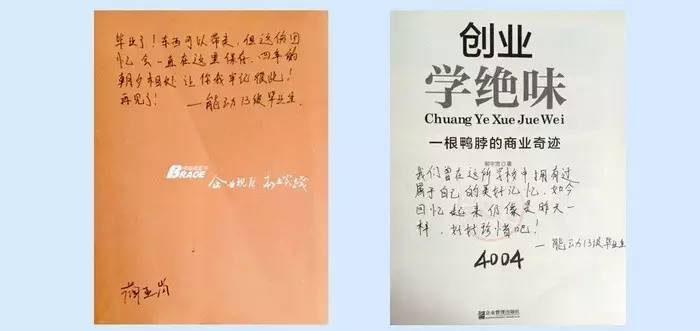 毕业了！东西可以带走，但这份回
忆会一直在这里保存，四年的
朝夕相处让你我牢记彼此！
再见了！
—能动13级毕业生
BRACE
企业视角
创业
学绝味
Chuang Ye Xue Jue Wei
一根鸭脖的商业奇迹
我们曾在这所学校中拥有过
属于自己的美好记忆，如今
回忆起来仍像是昨天一
样，好好珍惜吧！
—能动13级毕业生
4004
企业管理出版社